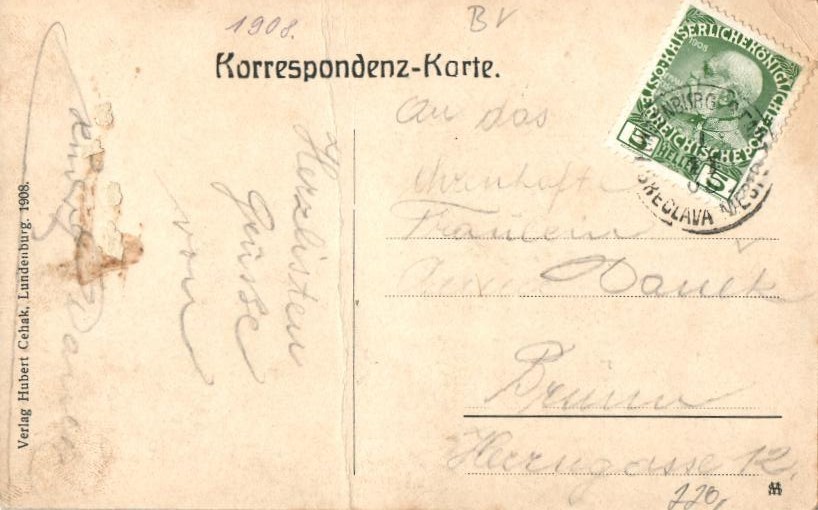 1908.
BV
Korrespondenz-Karte.
KAISERLICHE KÖNIGLICHE
ÖSTERREICHISCHE POST
1908
5 HELLER 5
BŘECLAVA MĚSTO
An das
ehrenhafte
Fräulein
Vanek
Brünn
Herrngasse 12.
Herzlichsten
Grüsse
von
Verlag Hubert Cehak, Lundenburg. 1908.
220,